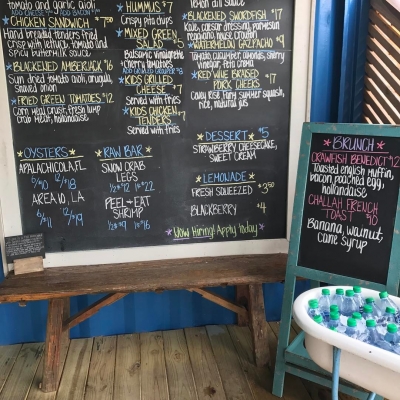 tomato and garlic aioli
ADD CHEESE $1 ADD BACON $1
CHICKEN SANDWICH * $7.50
Hand breaded tenders fried
crisp with lettuce, tomato and
spicy buttermilk sauce
*BLACKENED AMBERJACK $16
Sun dried tomato aioli, arugula,
shaved onion
*FRIED GREEN TOMATOES $12
Corn meal crust, fresh lump
crab meat, hollandaise
*HUMMUS* $7
Crispy pita chips
*MIXED GREEN
SALAD $5
Balsamic vinaigrette
cherry tomatoes
ADD GRILLED GROUPER $8
*KIDS GRILLED
CHEESE $7
Served with fries
*KIDS CHICKEN
TENDERS $7
Served with fries
lemon dill sauce
*BLACKENED SWORDFISH $17
Kale, caesar dressing, parmesan
reggiano, house crouton
*WATERMELON GAZPACHO $9
Tomato, cucumber, almonds, sherry
vinegar, feta crema
*RED WINE BRAISED
PORK CHEEKS $17
summer squash,
rice, natural jus
*OYSTERS*
APALACHICOLA, FL
6/$10 12/$18
AREA 10, LA
6/$11 12/$19
*RAW BAR*
SNOW CRAB
LEGS
1/2# $12 1# $22
PEEL + EAT
SHRIMP
1/2# $10 1# $16
*DESSERT* $5
STRAWBERRY CHEESECAKE,
SWEET CREAM
*LEMONADE*
FRESH SQUEEZED $3.50
BLACKBERRY $4
*Now Hiring! Apply today*
*BRUNCH*
CRAWFISH BENEDICT $12
Toasted english muffin,
bacon, poached egg,
hollandaise
CHALLAH FRENCH
TOAST $10
Banana, walnut,
cane syrup